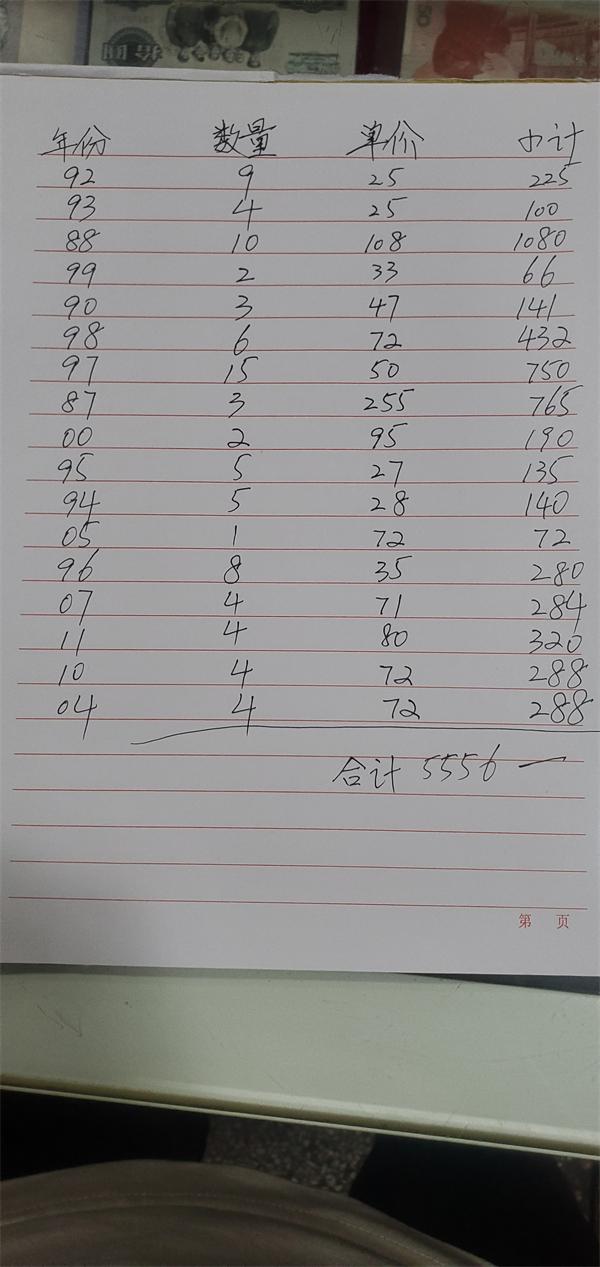 年份 数量 单价 小计
92 9 25 225
93 4 25 100
88 10 108 1080
99 2 33 66
90 3 47 141
98 6 72 432
97 15 50 750
87 3 255 765
00 2 95 190
95 5 27 135
94 5 28 140
05 1 72 72
96 8 35 280
07 4 71 284
11 4 80 320
10 4 72 288
04 4 72 288
合计 5556 一
第 页